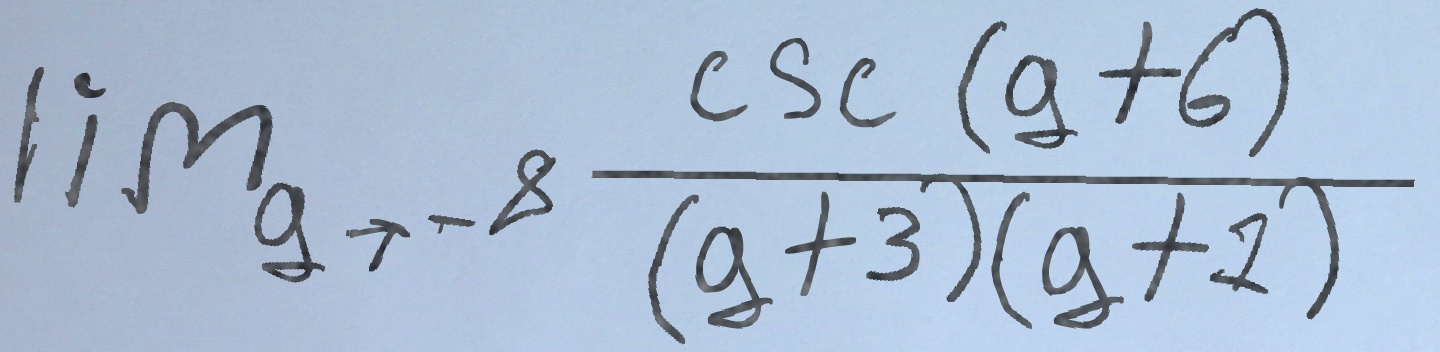 \lim_{g \to -8} \frac{\csc(g+6)}{(g+3)(g+2)}